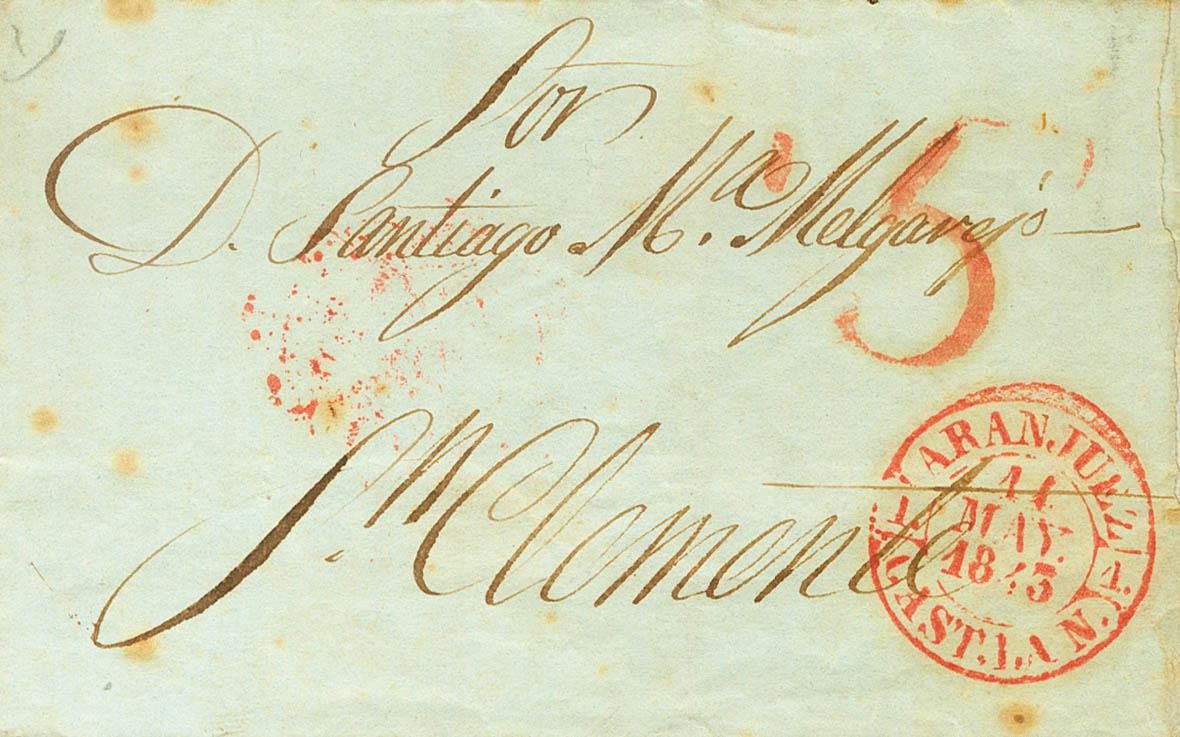 Sor
D. Santiago Ma. Melgarejo
5
Sn. Clemente
ARANJUEZ
14
MAY.
1843
CAST. LA N.